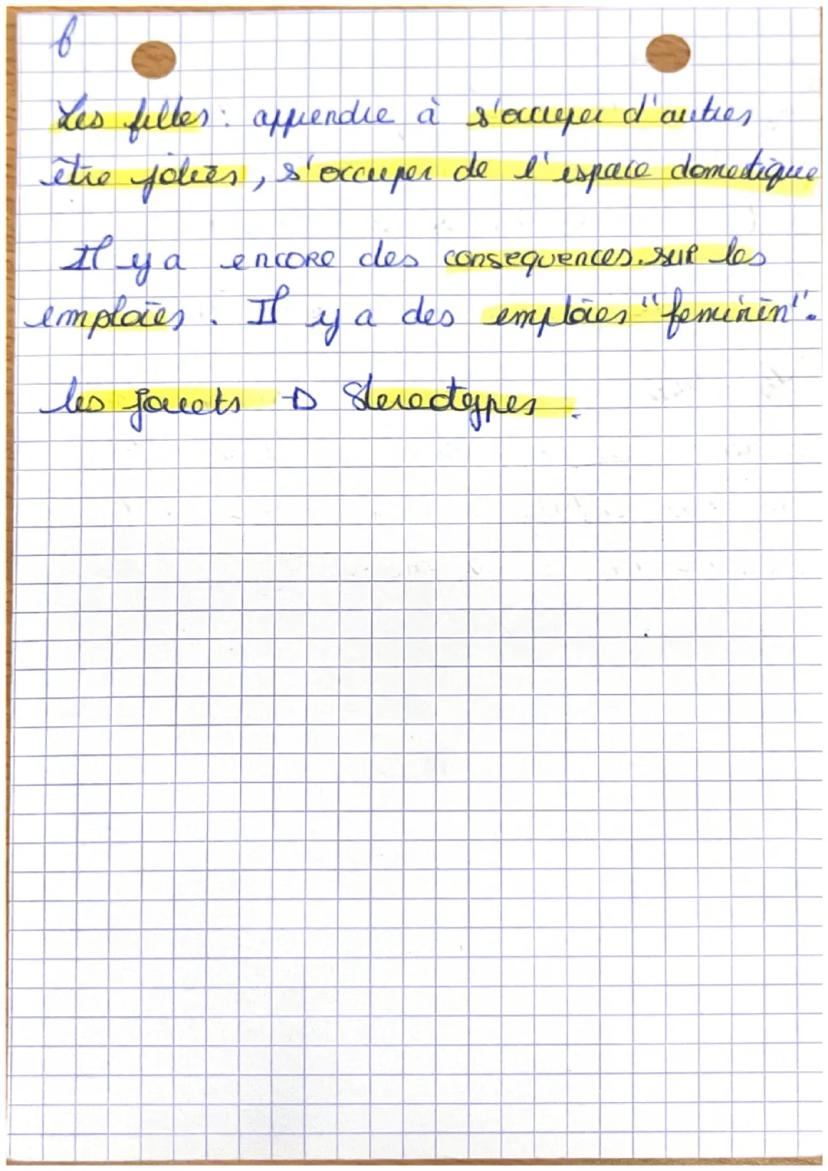 6
Les filles : apprendre à s'occuper d'autres
être jolies, s'occuper de l'espace domestique
Il y a encore des consequences sur les
emploies. Il y a des emploies "feminin".
les jouets → Stereotypes.